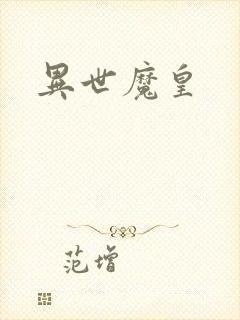 異世魔皇
范增